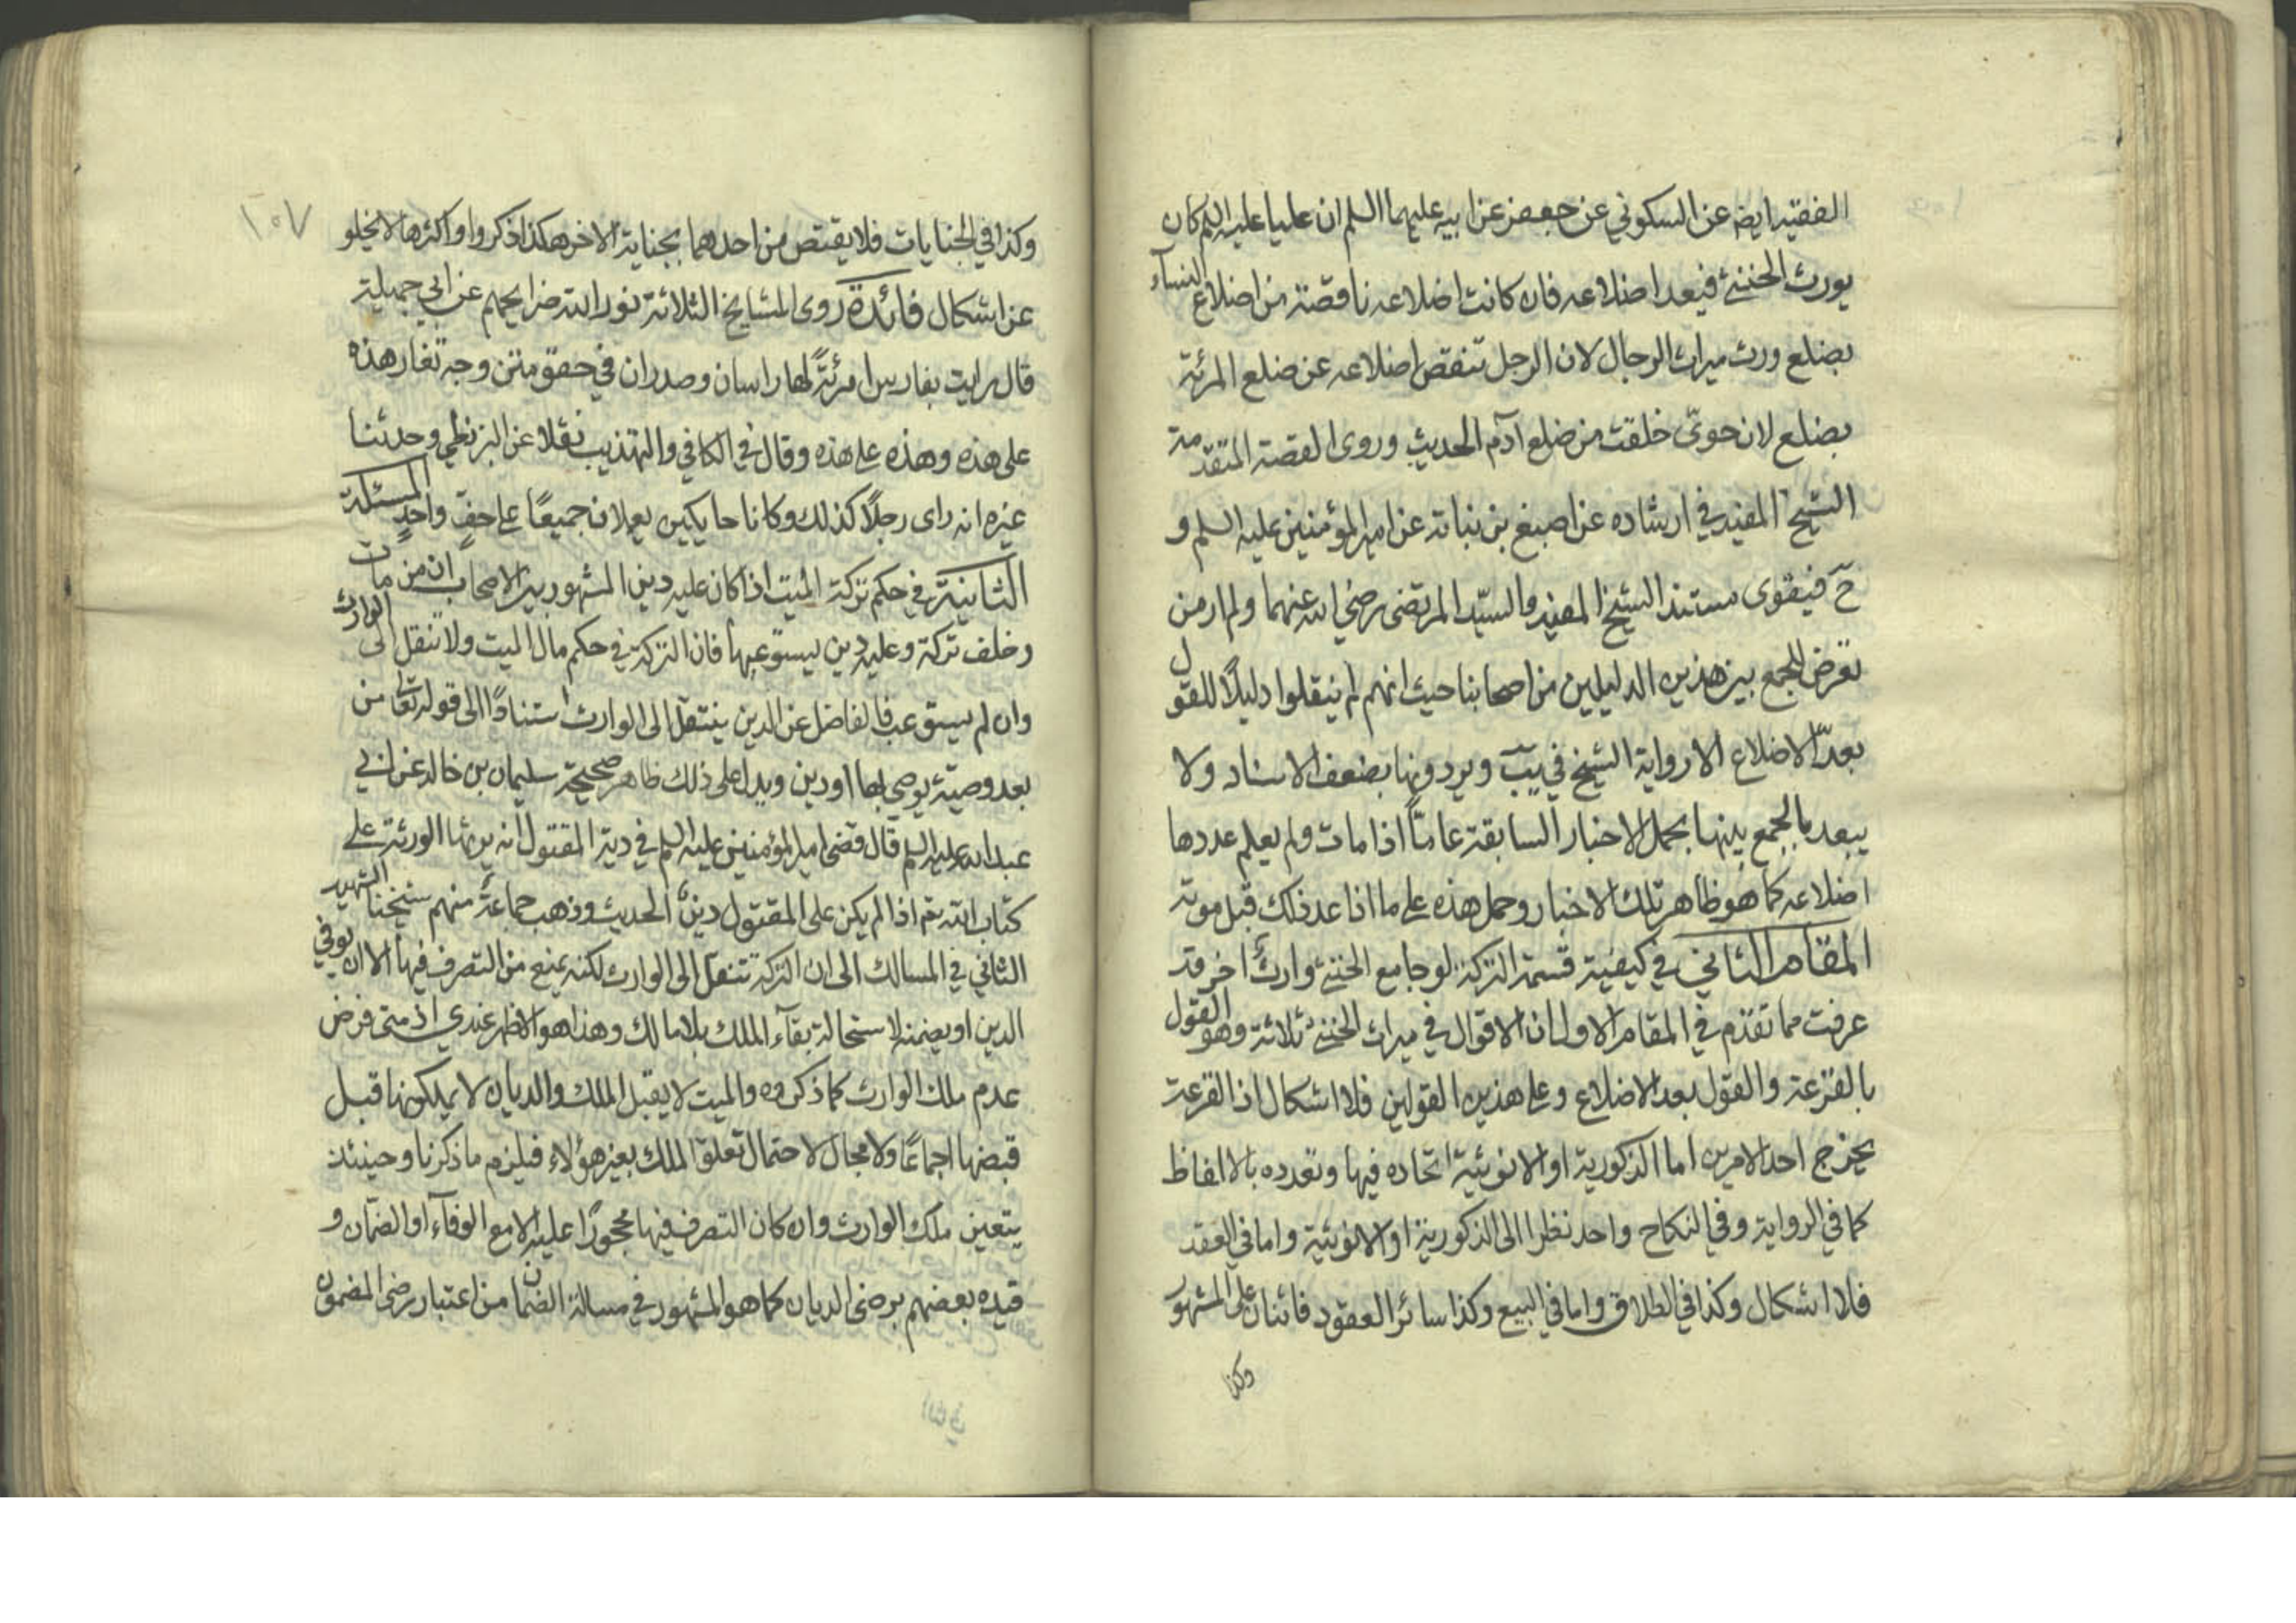 الفقيه ايضه عن السكوني عن جعفر عن ابيه عليهما السلم ان عليا عليه السلم كان
يورث الخنثى فيعد اضلاعه فان كانت اضلاعه ناقصة من اضلاع النساء
بضلع ورث ميراث الرجال لان الرجل تنقص اضلاعه عن ضلع المرئة
بضلع لان حوى خلقت من ضلع آدم الحديث وروى القصة المتقدمة
الشيخ المفيد في ارشاده عن اصبغ بن نباتة عن امير المؤمنين عليه السلم و
ح فيقوى مستند الشيخ المفيد والسيد المرتضى رضي الله عنهما ولم ار من
تعرض للجمع بين هذين الدليلين من اصحابنا حيث انهم لم ينقلوا دليلاً للقول
بعدّ الاضلاع الا رواية الشيخ في يب ويردونها بضعف الاسناد ولا
يبعد بالجمع بينها بحمل الاخبار السابقة عاما اذا مات ولم يعلم عددها
اضلاعه كما هو ظاهر تلك الاخبار وحمل هذه على ما اذا عد ذلك قبل موته
المقام الثاني في كيفية قسمة التركة لو جامع الخنثى وارث اخر قد
عرفت مما تقدم في المقام الاول ان الاقوال في ميراث الخنثى ثلاثة وهو القول
بالقرعة والقول بعد الاضلاع وعلى هذين القولين فلا اشكال اذ القرعة
يخرج احد الامرين اما الذكورية او الانوثية اتحاده فيها وتعدده بالالفاظ
كما في الرواية وفي النكاح واحد نظرا الى الذكورية او الانوثية واما في العقد
فلا اشكال وكذا في الطلاق واما في البيع وكذا سائر العقود فاثنان على المشهور
وكذا
١٠٧
وكذا في الجنايات فلا يقتص من احدهما بجناية الاخر هكذا ذكروا واكثرها لا يخلو
عن اشكال فائدة روى المشايخ الثلاثة نور الله ضرايحهم عن ابي جميلة
قال رايت بفارس امرئةً لها راسان وصدران في حقو متزوجة تغار هذه
على هذه وهذه على هذه وقال في الكافي والتهذيب نقلا عن البزنطي وحدثنا
غيره انه راى رجلاً كذلك وكانا حايكين يعملان جميعًا على حفٍ واحدٍ المسئلة
الثانية في حكم تركة الميت اذا كان عليه دين المشهور بين الاصحاب ان من مات
وخلف تركة وعليه دين يستوعبها فان التركة في حكم مال الميت ولا تنقل الى الوارث
وان لم يستوعب فالفاضل عن الدين ينتقل الى الوارث استنادًا الى قوله تعالى من
بعد وصية يوصى بها او دين ويدل على ذلك ظاهر صحيحة سليمان بن خالد عن ابي
عبد الله عليه السلم قال قضى امير المؤمنين عليه السلم في دية المقتول انه يرثها الورثة على
كتاب الله تع اذا لم يكن على المقتول دين الحديث وذهب جماعة منهم شيخنا الشهيد
الثاني في المسالك الى ان التركة تنتقل الى الوارث لكنه يمنع من التصرف فيها الا ان يوفي
الدين او يضمنه لاستحالة بقاء الملك بلا مالك وهذا هو الاظهر عندي اذ متى فرض
عدم ملك الوارث كما ذكروه والميت لا يقبل الملك والديان لا يملكونها قبل
قبضها اجماعًا ولا مجال لاحتمال تعلق الملك بغير هؤلاء فيلزم ما ذكرنا وحينئذ
يتعين ملك الوارث وان كان التصرف فيها محجورًا عليه الا مع الوفاء او الضمان و
قيده بعضهم برضى الديان كما هو المشهور في مسالة الضمان من اعتبار رضى المضمون